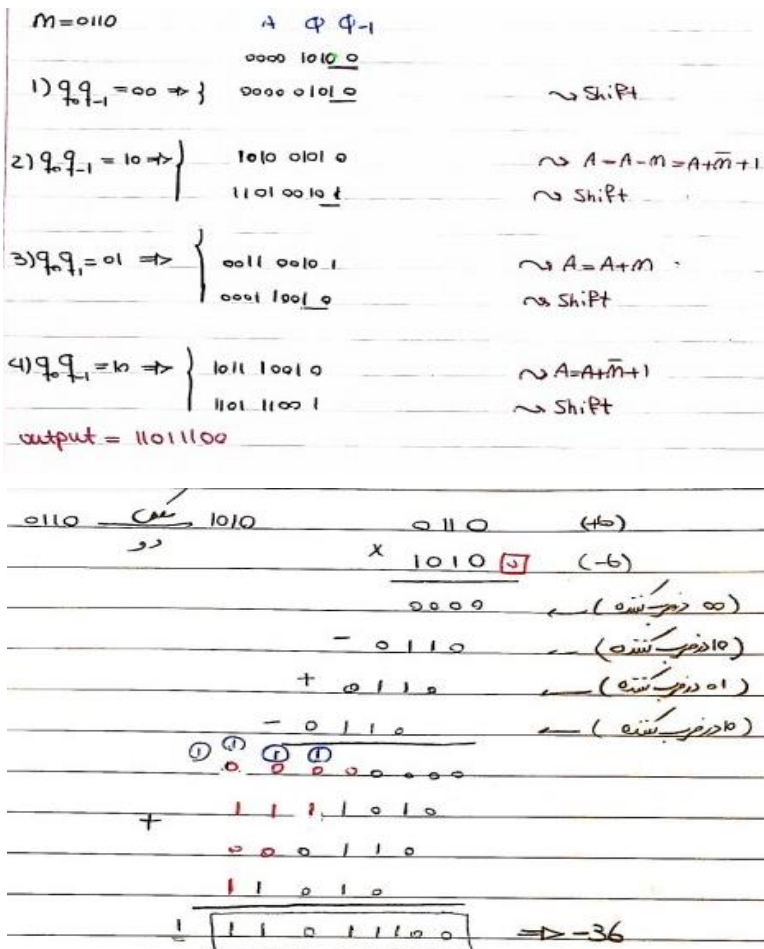 M=0110 A Q Q-1
0000 1010 0
1) q0q-1 = 00 ⇒ { 0000 0101 0 ~> Shift
2) q0q-1 = 10 ⇒ } 1010 0101 0 ~> A=A-M=A+m̅+1
1101 0010 1 ~> Shift
3) q0q1 = 01 ⇒ { 0011 0010 1 ~> A=A+M
0001 1001 0 ~> Shift
4) q0q-1 = 10 ⇒ { 1011 1001 0 ~> A=A+m̅+1
1101 1100 1 ~> Shift
output = 11011100
0110 مکمل دو 1010 0110 (+6)
× 1010 0 (-6)
0000 ← (00 در ضرب کننده)
- 0110 ← (10 در ضرب کننده)
+ 0110 ← (01 در ضرب کننده)
- 0110 ← (10 در ضرب کننده)
1 1 1 1
00000000
1111010
+ 000110
11010
1 11011100 ⇒ -36